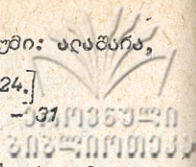 უმი: ალაშარა,
24.]
– 31
ეროვნული
ბიბლიოთეკა